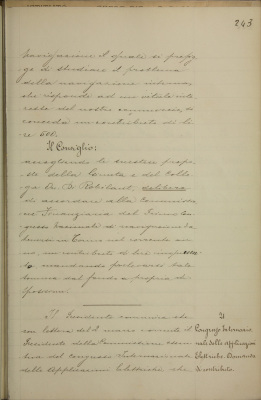 243
navigazione il quale si propo-
ne di studiare il problema
della navigazione interna,
che risponde ad un vitale inte-
resse del nostro commercio, si
conceda un contributo di li-
re 500.
Il Consiglio:
accogliendo le suestese propo-
ste della Giunta e del Colle-
ga De B. Robilant, delibera
di accordare alla Commissio-
ne Finanziaria del Primo Con-
gresso Nazionale di navigazione da
tenersi in Torino nel corrente an-
no, un contributo di lire
mandando prelevarsi tale
somma dal fondo a propria di-
sposizione.
Il Presidente comunica che
con lettera del 2 marzo corrente il
Presidente della Commissione esecu-
tiva del Congresso Internazionale
delle Applicazioni Elettriche che
Il
Congresso Internazio-
nale delle Applicazioni
Elettriche. Domanda
di contributo